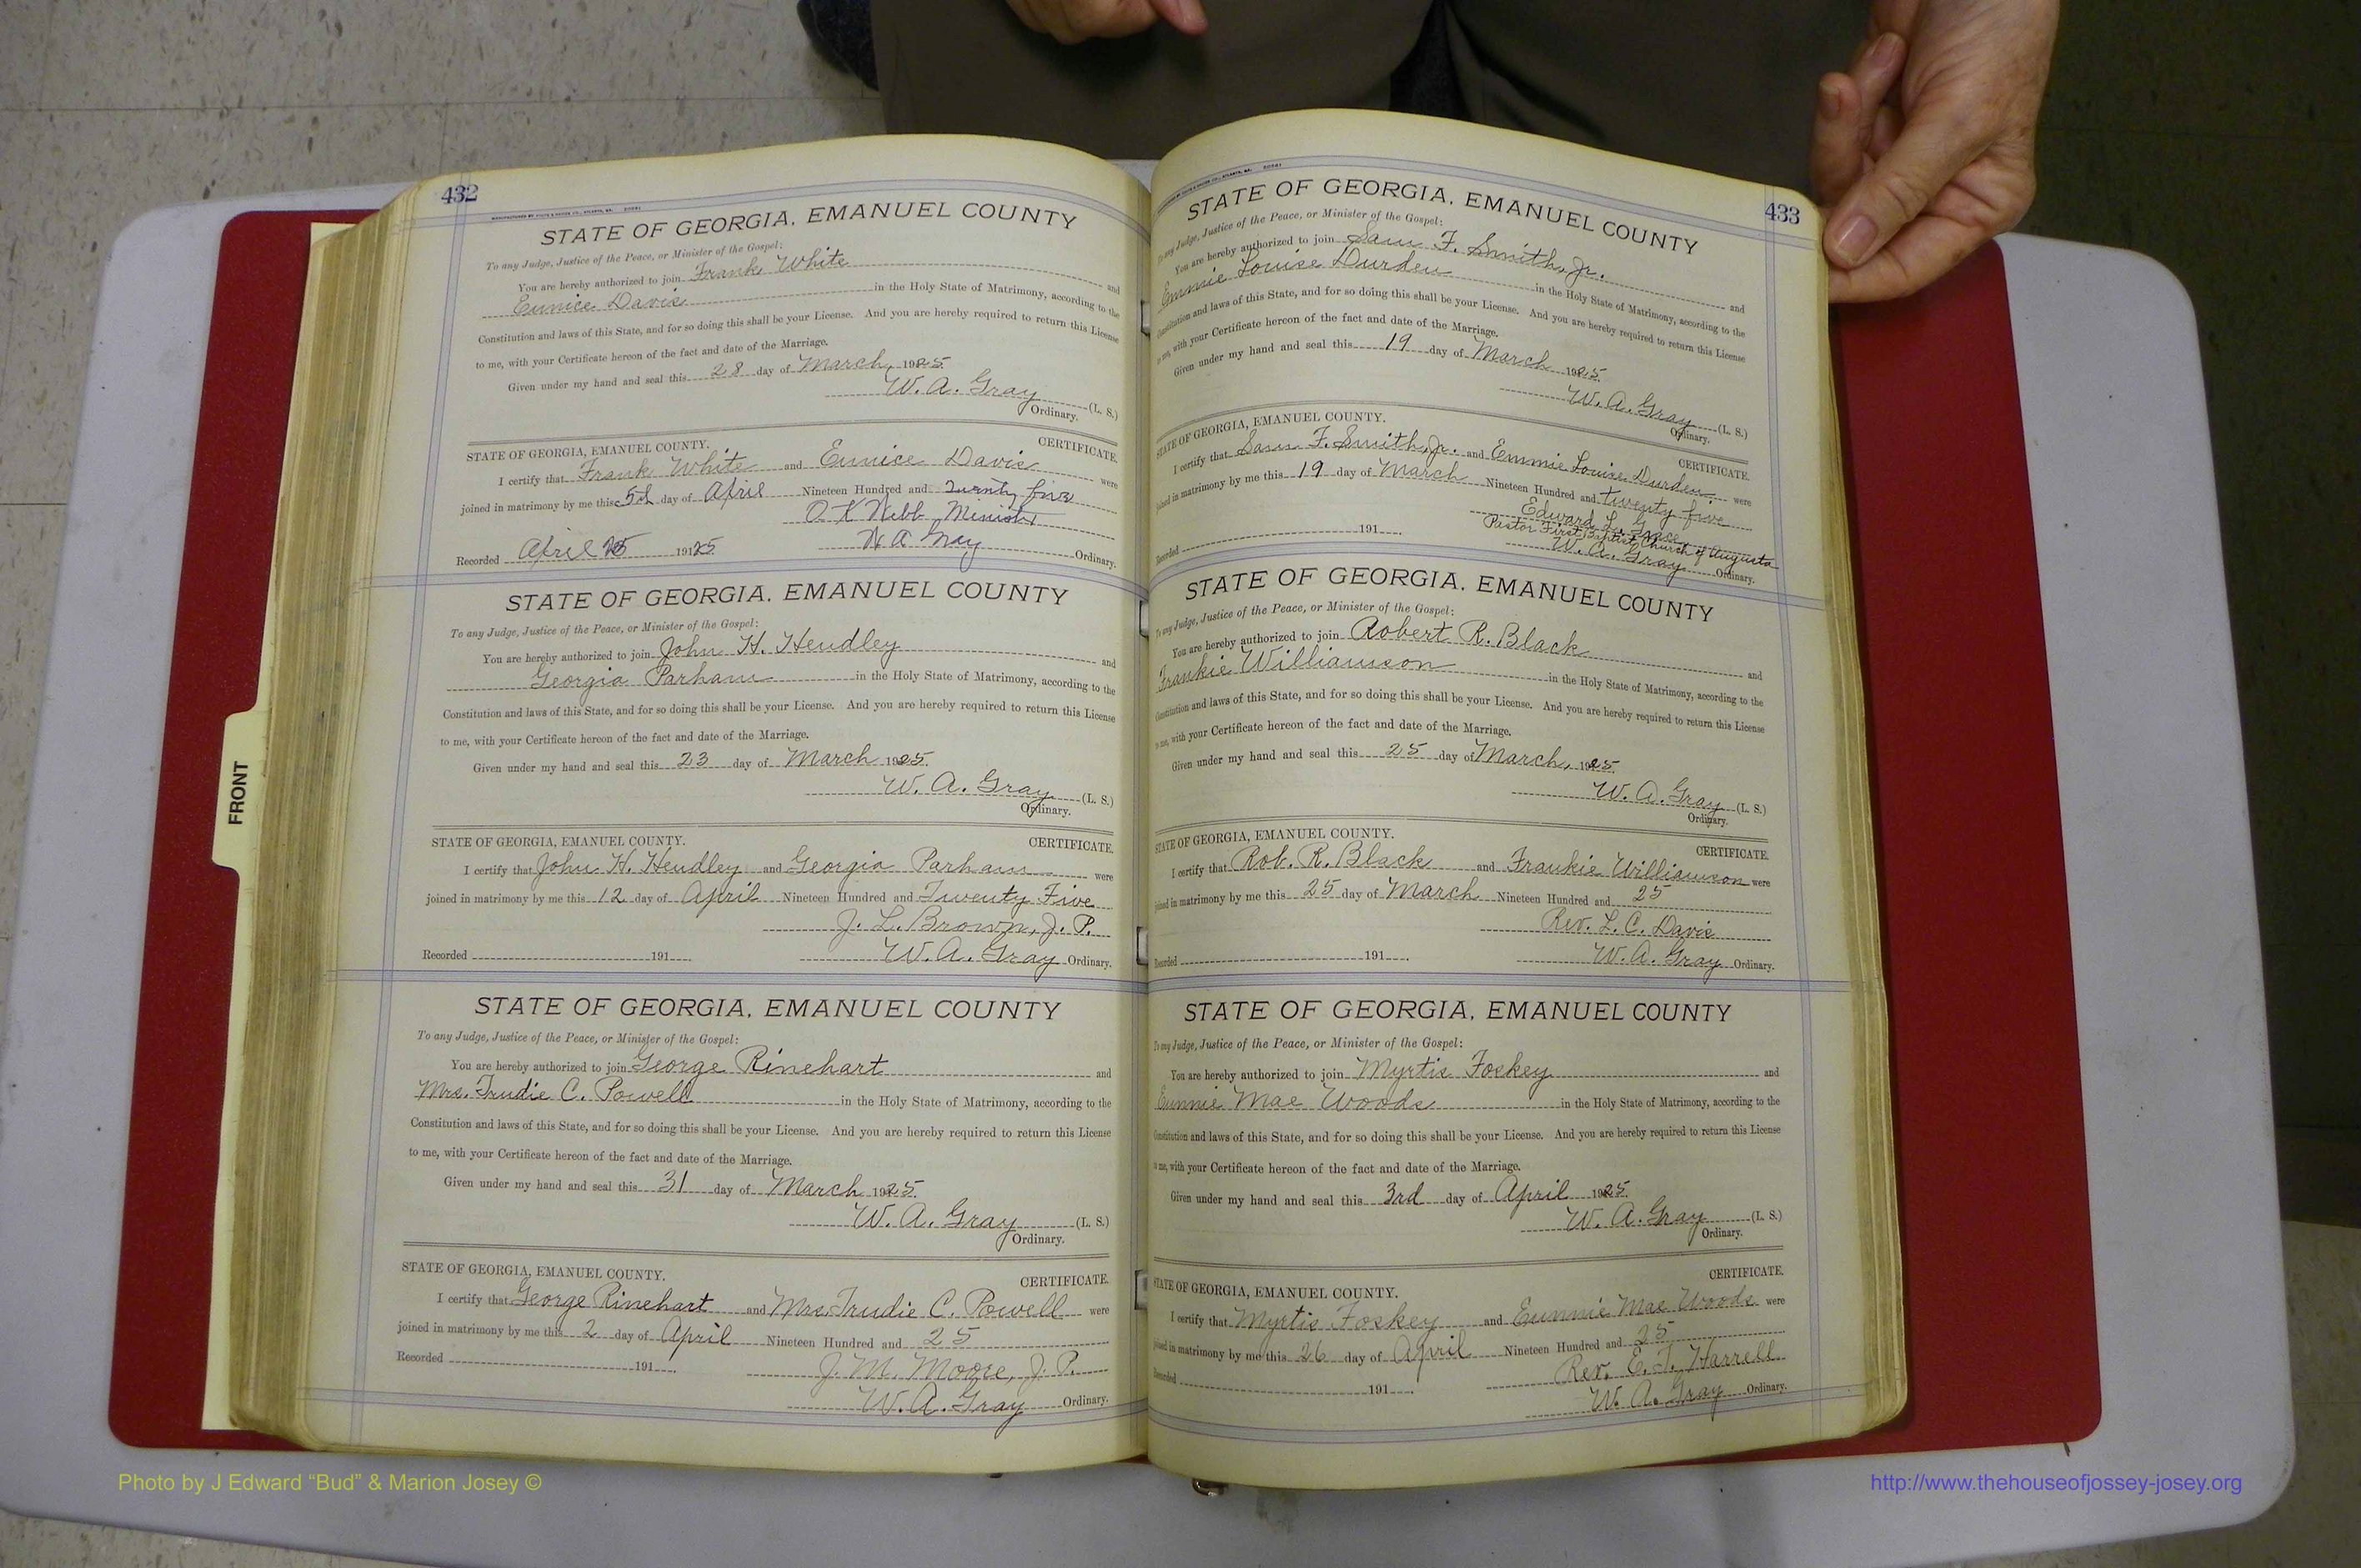 432
STATE OF GEORGIA, EMANUEL COUNTY
To any Judge, Justice of the Peace, or Minister of the Gospel:
You are hereby authorized to join Frank White and
Eunice Davis in the Holy State of Matrimony, according to the
Constitution and laws of this State, and for so doing this shall be your License. And you are hereby required to return this License
to me, with your Certificate hereon of the fact and date of the Marriage.
Given under my hand and seal this 28 day of March, 1925.
W. A. Gray (L. S.)
Ordinary.
STATE OF GEORGIA, EMANUEL COUNTY. CERTIFICATE.
I certify that Frank White and Eunice Davis were
joined in matrimony by me this 5th day of April Nineteen Hundred and Twenty five
O K Webb Minister
Recorded April 1925 W A Gray Ordinary.
STATE OF GEORGIA, EMANUEL COUNTY
To any Judge, Justice of the Peace, or Minister of the Gospel:
You are hereby authorized to join John H. Hendley and
Georgia Parham in the Holy State of Matrimony, according to the
Constitution and laws of this State, and for so doing this shall be your License. And you are hereby required to return this License
to me, with your Certificate hereon of the fact and date of the Marriage.
Given under my hand and seal this 23 day of March 1925.
W. A. Gray (L. S.)
Ordinary.
STATE OF GEORGIA, EMANUEL COUNTY. CERTIFICATE.
I certify that John H. Hendley and Georgia Parham were
joined in matrimony by me this 12 day of April Nineteen Hundred and Twenty Five
J. L. Brown, J. P.
Recorded 191 W. A. Gray Ordinary.
STATE OF GEORGIA, EMANUEL COUNTY
To any Judge, Justice of the Peace, or Minister of the Gospel:
You are hereby authorized to join George Rinehart and
Mrs. Trudie C. Powell in the Holy State of Matrimony, according to the
Constitution and laws of this State, and for so doing this shall be your License. And you are hereby required to return this License
to me, with your Certificate hereon of the fact and date of the Marriage.
Given under my hand and seal this 31 day of March 1925.
W. A. Gray (L. S.)
Ordinary.
STATE OF GEORGIA, EMANUEL COUNTY. CERTIFICATE.
I certify that George Rinehart and Mrs. Trudie C. Powell were
joined in matrimony by me this 2 day of April Nineteen Hundred and 25
Recorded 191 J. M. Moore, J. P.
W. A. Gray Ordinary.
433
STATE OF GEORGIA, EMANUEL COUNTY
To any Judge, Justice of the Peace, or Minister of the Gospel:
You are hereby authorized to join Sam F. Smith, Jr. and
Emmie Louise Durden in the Holy State of Matrimony, according to the
Constitution and laws of this State, and for so doing this shall be your License. And you are hereby required to return this License
to me, with your Certificate hereon of the fact and date of the Marriage.
Given under my hand and seal this 19 day of March 1925.
W. A. Gray (L. S.)
Ordinary.
STATE OF GEORGIA, EMANUEL COUNTY. CERTIFICATE.
I certify that Sam F. Smith, Jr. and Emmie Louise Durden. were
joined in matrimony by me this 19 day of March Nineteen Hundred and twenty five
Edward L. Grace
Pastor First Baptist Church of Augusta
Recorded 191 W. A. Gray Ordinary.
STATE OF GEORGIA, EMANUEL COUNTY
To any Judge, Justice of the Peace, or Minister of the Gospel:
You are hereby authorized to join Robert R. Black and
Frankie Williamson in the Holy State of Matrimony, according to the
Constitution and laws of this State, and for so doing this shall be your License. And you are hereby required to return this License
to me, with your Certificate hereon of the fact and date of the Marriage.
Given under my hand and seal this 25 day of March, 1925.
W. A. Gray (L. S.)
Ordinary.
STATE OF GEORGIA, EMANUEL COUNTY. CERTIFICATE.
I certify that Rob. R. Black and Frankie Williamson were
joined in matrimony by me this 25 day of March Nineteen Hundred and 25
Rev. L. C. Davis
Recorded 191 W. A. Gray Ordinary.
STATE OF GEORGIA, EMANUEL COUNTY
To any Judge, Justice of the Peace, or Minister of the Gospel:
You are hereby authorized to join Myrtis Foskey and
Eunnie Mae Woods in the Holy State of Matrimony, according to the
Constitution and laws of this State, and for so doing this shall be your License. And you are hereby required to return this License
to me, with your Certificate hereon of the fact and date of the Marriage.
Given under my hand and seal this 3rd day of April 1925.
W. A. Gray (L. S.)
Ordinary.
STATE OF GEORGIA, EMANUEL COUNTY. CERTIFICATE.
I certify that Myrtis Foskey and Eunnie Mae Woods were
joined in matrimony by me this 26 day of April Nineteen Hundred and 25
Rev. E. F. Harrell
Recorded 191 W. A. Gray Ordinary.
FRONT
Photo by J Edward “Bud” & Marion Josey ©
http://www.thehouseofjossey-josey.org